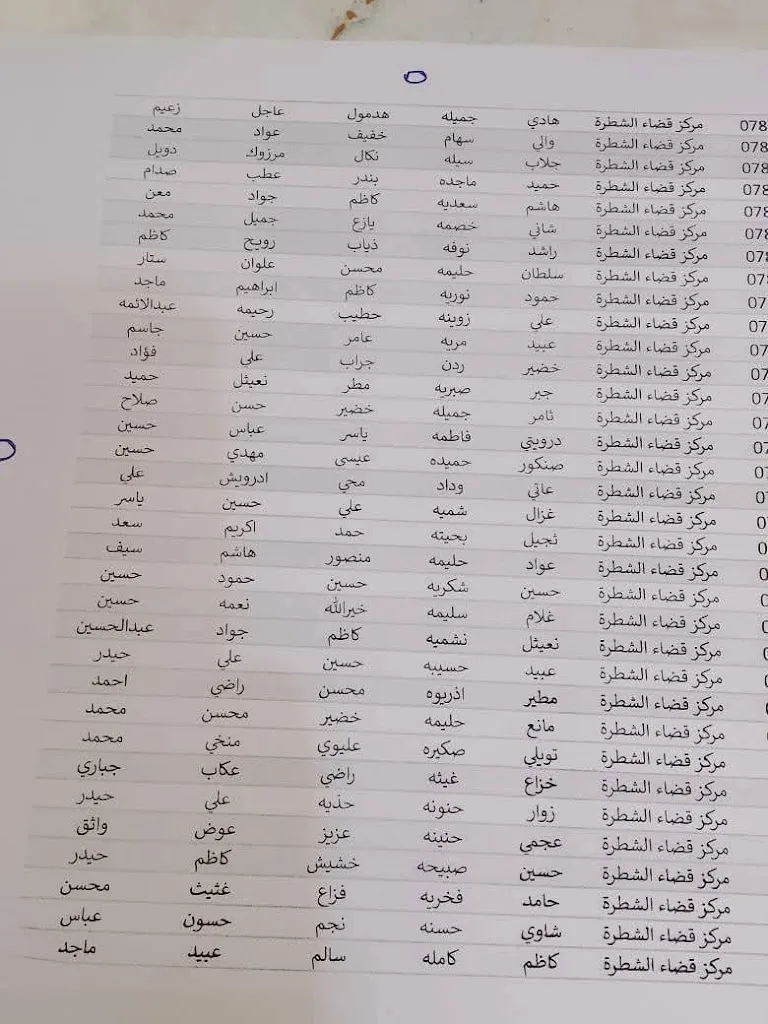 078 مركز قضاء الشطرة هادي جميله هدمول عاجل زعيم
078 مركز قضاء الشطرة والي سهام خفيف عواد محمد
078 مركز قضاء الشطرة جلاب سيله نكال مرزوك دوبل
078 مركز قضاء الشطرة حميد ماجده بندر عطب صدام
078 مركز قضاء الشطرة هاشم سعديه كاظم جواد معن
078 مركز قضاء الشطرة شاني خصمه يازع جميل محمد
078 مركز قضاء الشطرة راشد نوفه ذياب رويح كاظم
07 مركز قضاء الشطرة سلطان حليمه محسن علوان ستار
07 مركز قضاء الشطرة حمود نوريه كاظم ابراهيم ماجد
07 مركز قضاء الشطرة علي زوينه حطيب رحيمه عبدالائمه
07 مركز قضاء الشطرة عبيد مريه عامر حسين جاسم
07 مركز قضاء الشطرة خضير ردن جراب علي فؤاد
07 مركز قضاء الشطرة جبر صبريه مطر نعيثل حميد
07 مركز قضاء الشطرة ثامر جميله خضير حسن صلاح
07 مركز قضاء الشطرة درويتي فاطمه ياسر عباس حسين
07 مركز قضاء الشطرة صنكور حميده عيسى مهدي حسين
07 مركز قضاء الشطرة عاتي وداد محي ادرويش علي
0 مركز قضاء الشطرة غزال شميه علي حسين ياسر
0 مركز قضاء الشطرة ثجيل بخيته حمد اكريم سعد
0 مركز قضاء الشطرة عواد حليمه منصور هاشم سيف
مركز قضاء الشطرة حسين شكريه حسين حمود حسين
مركز قضاء الشطرة غلام سليمه خيرالله نعمه حسين
مركز قضاء الشطرة نعيثل نشميه كاظم جواد عبدالحسين
مركز قضاء الشطرة عبيد حسيبه حسين علي حيدر
مركز قضاء الشطرة مطير اذريوه محسن راضي احمد
مركز قضاء الشطرة مانع حليمه خضير محسن محمد
مركز قضاء الشطرة تويلي صكيره عليوي منخي محمد
مركز قضاء الشطرة خزاع غيثه راضي عكاب جباري
مركز قضاء الشطرة زوار حنونه حذيه علي حيدر
مركز قضاء الشطرة عجمي حنينه عزيز عوض واثق
مركز قضاء الشطرة حسين صبيحه خشيش كاظم حيدر
مركز قضاء الشطرة حامد فخريه فزاع غثيث محسن
مركز قضاء الشطرة شاوي حسنه نجم حسون عباس
مركز قضاء الشطرة كاظم كامله سالم عبيد ماجد